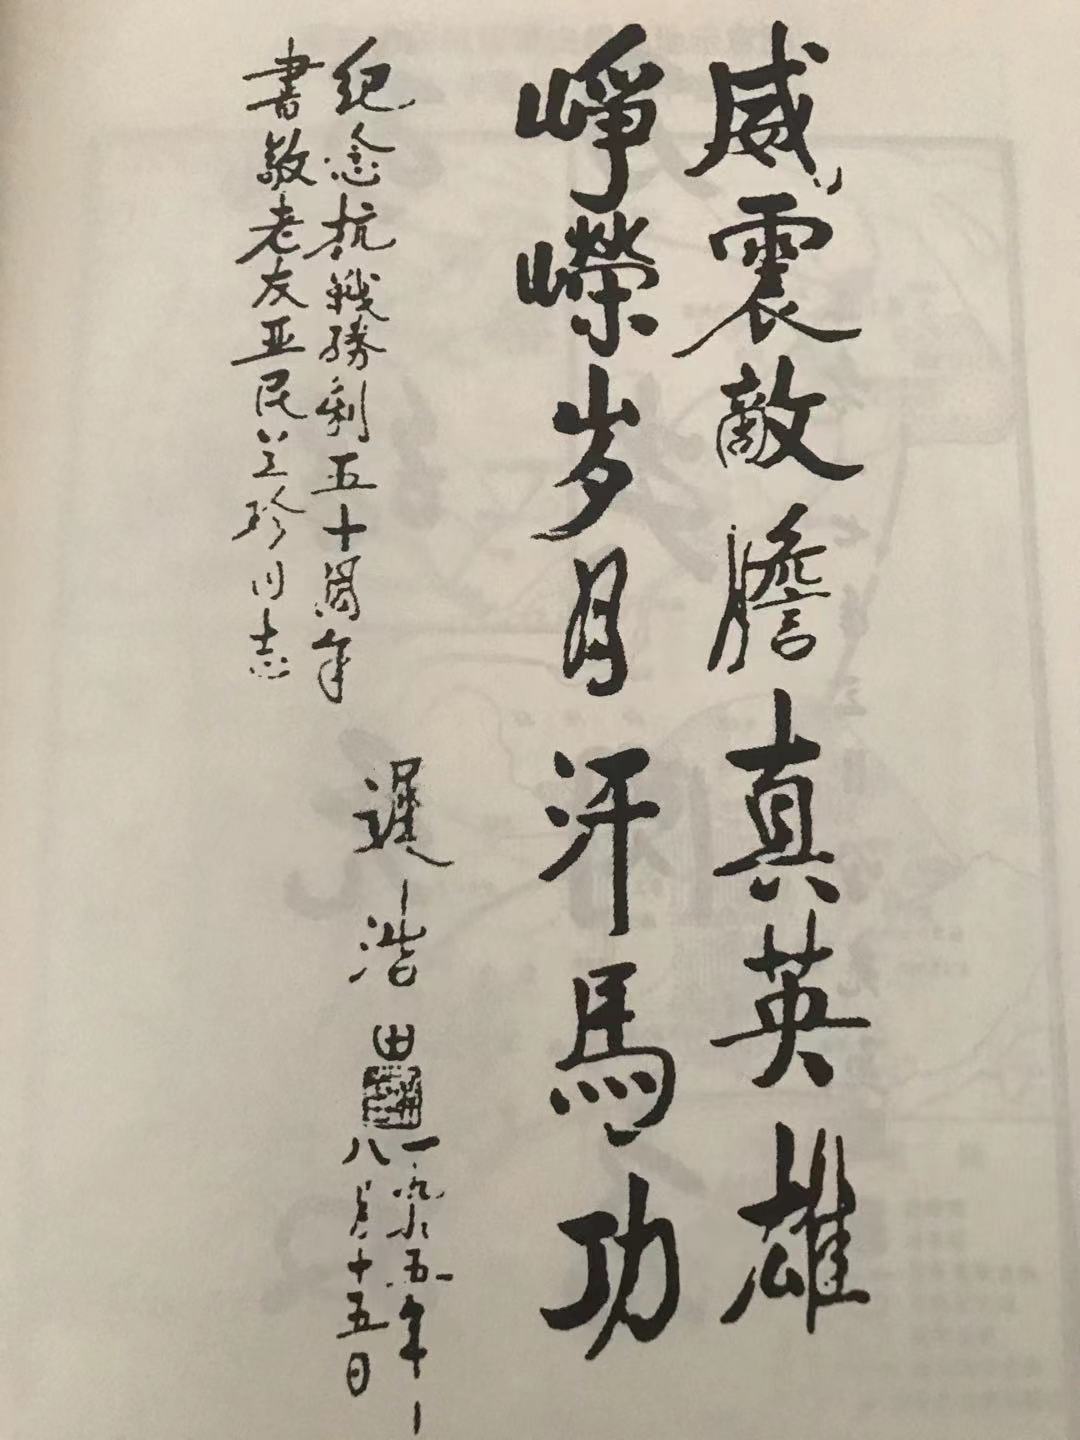 威震敵膽真英雄
崢嶸岁月汗馬功
纪念抗戰勝利五十周年
書敬老友亚民兰珍同志
遲浩田
一九九五年
八月十五日